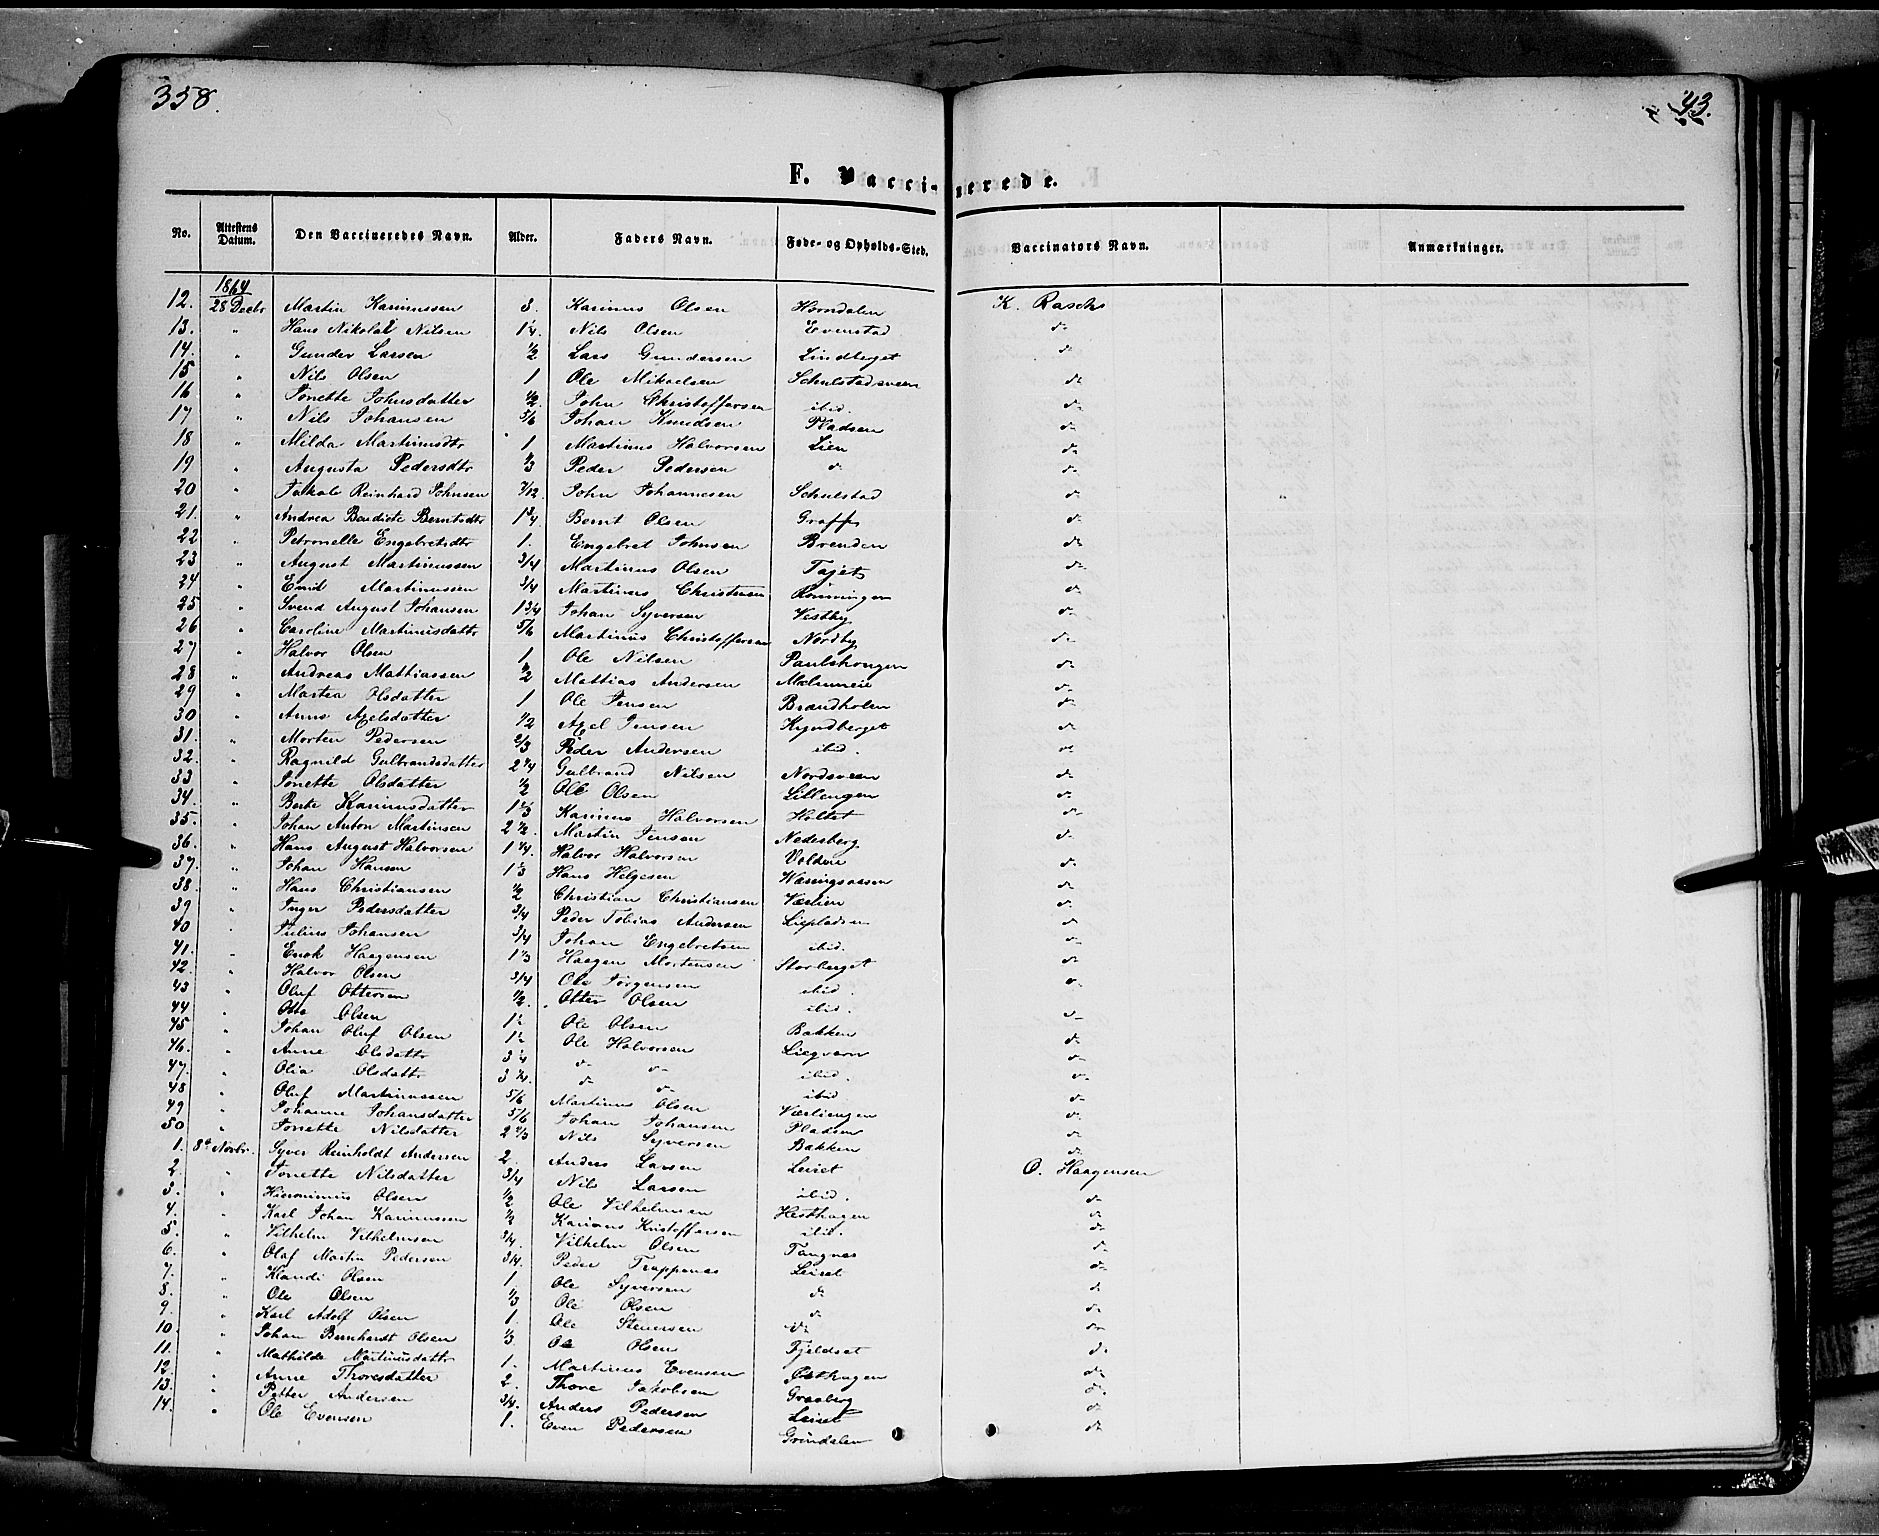 358.
43.
F. Vaccinerede.
No. Attestens Datum. Den Vaccineredes Navn. Alder. Faders Navn. Føde- og Opholds-Sted. Vaccinators Navn. Anmærkninger.
1864
12. 28 Decbr Martin Karinussen 3. Karinus Olsen Horndalen K. Rasch
13. " Hans Nikolai Nilsen 1¼. Nils Olsen Evenstad do
14. " Gunder Larsen ½ Lars Gundersen Lindberget do
15 " Nils Olsen 1 Ole Mikaelsen Schulstadsveen do
16 " Tonette Johnsdatter ½ John Christoffersen ibid. do
17 " Nils Johansen 5/6 Johan Knudsen Pladsen do
18 " Milda Martinusdtr 1 Martinus Halvorsen Lien do
19 " Augusta Pedersdtr ⅓ Peder Pedersen do do
20 " Jakob Reinhard Johnsen 7/12. John Johannesen Schulstad do
21. " Andrea Bendicte Berntsdtr 1¾ Bernt Olsen Graff do
22 " Petronelle Engebretsdtr 1. Engebret Johnsen Brenden do
23 " August Martinussen 3/4 Martinus Olsen Tajet do
24 " Emil Martinussen 3/4 Martinus Christensen Rönningen do
25 " Svend August Johansen 1 3/4 Johan Syversen Vestby do
26 " Caroline Martinusdatter 5/6 Martinus Christoffersen Nordby do
27 " Halvor Olsen 1 Ole Nilsen Paulshougen do
28 " Andreas Mathiassen ½ Mattias Andersen do
29 " Martea Olsdatter 1 Ole Jensen Brændholen do
30 " Anne Axelsdatter ½ Axel Jensen Kyndberget do
31. " Morten Pedersen 2/3 Peder Andersen ibid. do
32. " Ragnild Gulbrandsdatter 2¼ Gulbrand Nilsen Nordsveen do
33 " Tonette Olsdatter ½ Ole Olsen Lillengen do
34. " Berte Karinusdatter 1⅓ Karinus Halvorsen Holtet do
35. " Johan Anton Martinsen 2½. Martin Jensen Nederberg do
36. " Hans August Halvorsen 1¼. Halvor Halvorsen Volden do
37. " Johan Hansen 1⅓ Hans Helgesen Wæringsaasen do
38. " Hans Christiansen ½ Christian Christiansen Værlien do
39 " Inger Pedersdatter 3/4 Peder Tobias Andersen Liepladsen do
40 " Julius Johansen 3/4 Johan Engebretsen ibid. do
41. " Enok Haagensen 1⅓ Haagen Mortensen Storberget do
42. " Halvor Olsen 3/4 Ole Jörgensen ibid. do
43 " Oluf Ottersen ½. Otter Olsen ibid. do
44 " Otto Olsen 1½ Ole Olsen Bakken do
45 " Johan Oluf Olsen 1½ Ole Halvorsen Liegvern do
46. " Anne Olsdattr do do ibid. do
47. " Olia Olsdattr 3 do do ibid. do
48 " Oluf Martinussen 5/6 Martinus Olsen Værliengen do
49 " Johanne Johansdatter 5/6 Johan Johansen Pladsen do
50 " Tonette Nilsdatter Nils Syversen Bakken do
1. 8de Novbr. Syver Reinholdt Andersen 2. Anders Larsen Leiret O. Haagensen
2. " Tonette Nilsdatter 3/4 Nils Larsen ibid. do
3. " Hieronimus Olsen ½ Ole Vilhelmsen Hesthagen do
4. " Karl Johan Karinussen ½ Karinus Kristoffersen ibid. do
5. " Vilhelm Vilhelmsen 3/4. Vilhelm Olsen Tangnes do
6. " Olaf Martin Pedersen 3/4. Peder Trappenes Leiret do
7. " Klandi Olsen 1. Ole Syversen do do
8. " Ole Olsen ⅓ Ole Olsen do do
9. " Karl Adolf Olsen 1. Ole Stenersen do do
10. " Johan Bernhardt Olsen ⅓. Ole Olsen Fjeldset do
11. " Mathilde Martinusdattr 1. Martinus Evensen Østhagen do
12. " Anne Thoresdatter 2. Thore Jakobsen Graaberg do
13. " Petter Andersen 3/4. Anders Pedersen Leiret do
14. " Ole Evensen 1. Even Pedersen Grindalen do